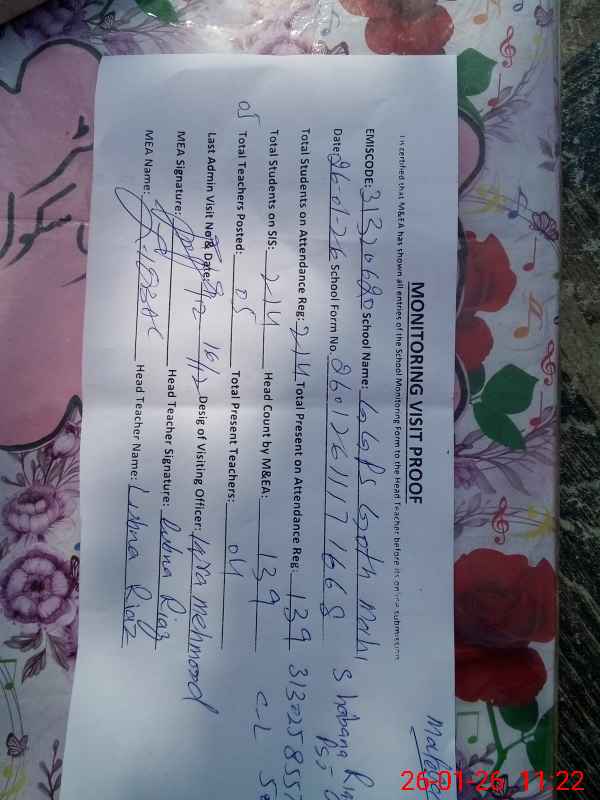 MONITORING VISIT PROOF
It is certified that M&EA has shown all entries of the School Monitoring Form to the Head Teacher before its online submission
EMISCODE: 31320680 School Name: GGPS Goth Mahi
Date: 26-01-26 School Form No. 26012611171668
Total Students on Attendance Reg: 214 Total Present on Attendance Reg: 139
Total Students on SIS: 214 Head Count by M&EA: 139
05 Total Teachers Posted: 05 Total Present Teachers: 04
Last Admin Visit No & Date: 16/12 Desig of Visiting Officer: Iqra mehmood
MEA Signature: Head Teacher Signature: Lubna Riaz
MEA Name: Head Teacher Name: Lubna Riaz
Shabana
C-L
26-01-26 11:22